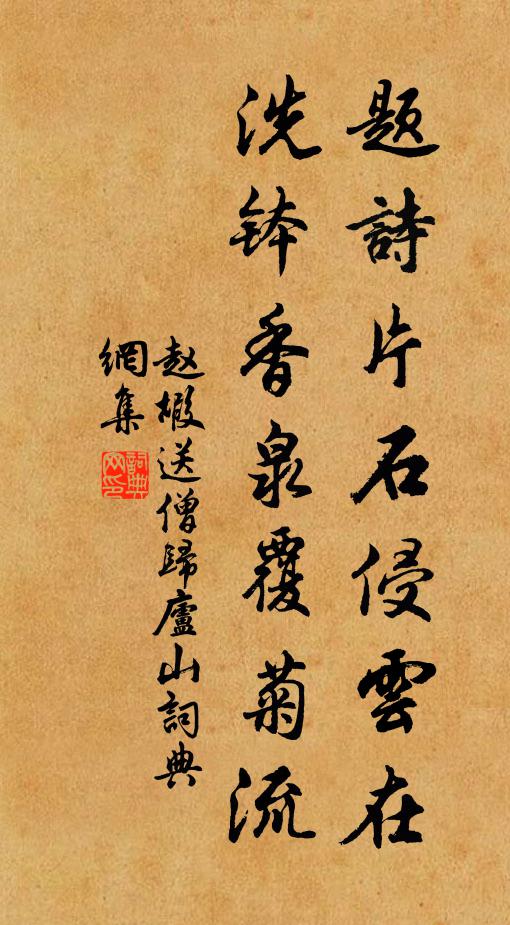 题詩片石侵雲在
洗鉢香泉覆菊流
赵嘏送僧歸廬山詞典
網集
詞典
网印